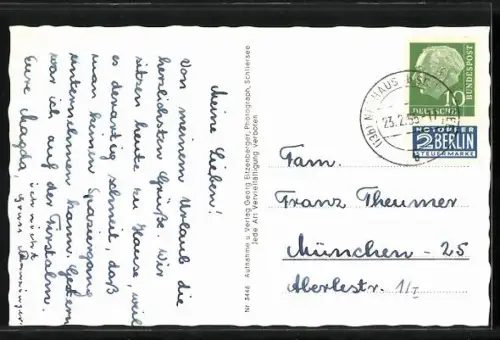 Meine Lieben!
Von meinem Urlaub die
herzlichsten Grüße. Wir
sitzen heute zu Hause, weil
es derartig schneit, daß
man keinen Spaziergang
unternehmen kann. Gestern
war ich auf der Firstalm.
Eure Magda,
Nr. 3446 Aufnahme u. Verlag Georg Eitzenberger, Photograph, Schliersee
Jede Art Vervielfältigung verboten
10
DEUTSCHE
BUNDESPOST
NOTOPFER
2 BERLIN
STEUERMARKE
23.2.55
Fam.
Franz Theumer
München - 25
Aberlestr. 1/I